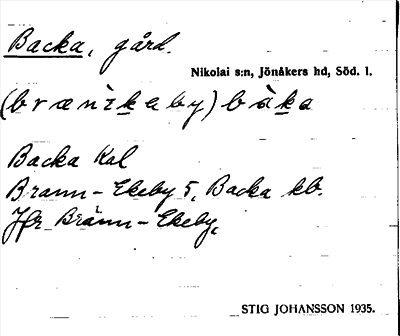 Backa, gård.
Nikolai s:n, Jönåkers hd, Söd. l.
(brænɩkeby) bàka
Backa Kal
Brann-Ekeby 5, Backa kb.
Jfr Bränn-Ekeby,
STIG JOHANSSON 1935.